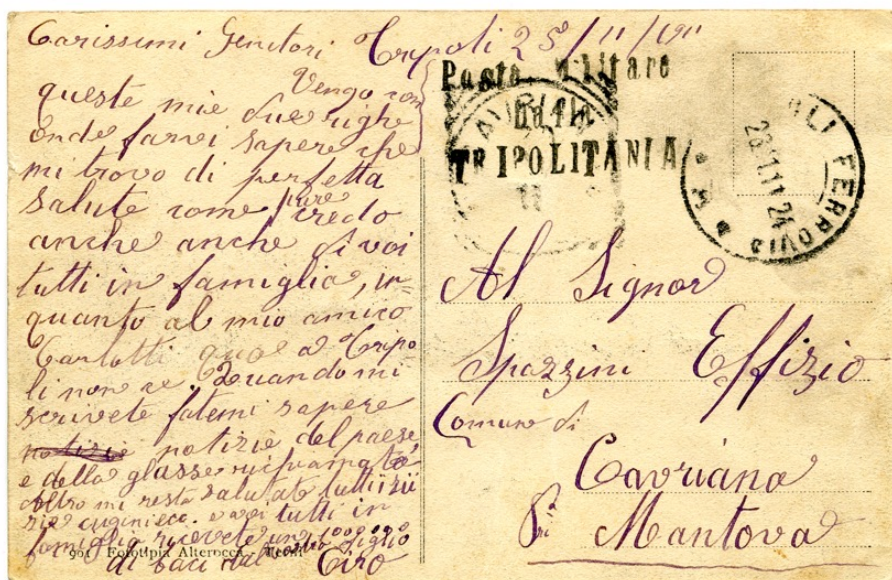 Carissimi Genitori Tripoli 25/11/1911
Vengo con
queste mie due righe
onde farvi sapere che
mi trovo di perfetta
salute come pure credo
anche anche di voi
tutti in famiglia, in=
quanto al mio amico
Carlotti qua a Tripo
li non ce. Quando mi
scrivete fatemi sapere
notizie notizie del paese
e della glasse richiamata
Altro mi resta salutate tutti i zii
zie cugini ecc. e voi tutti in
famiglia ricevete un 1000000
di baci dal vostro figlio
Ciro
901 Fototipia Alterocca - Terni
Posta Militare
TRIPOLITANIA
11
FERROVIA
Al Signor
Spazzini Effizio
Comune di
Cavriana
Mantova